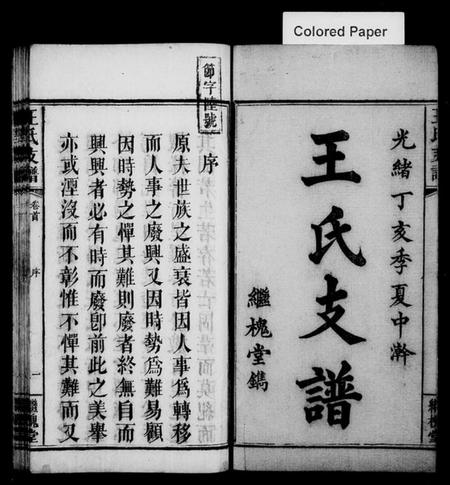 Colored Paper
王氏支譜
光緒丁亥季夏中澣
王氏支譜
繼槐堂鐫
繼槐堂
節字陸號
序
原夫世族之盛衰皆因人事爲轉移
而人事之廢興又因時勢爲難易顧
因時勢之憚其難則廢者終無自而
興興者必有時而廢卽前此之美舉
亦或湮沒而不彰惟不憚其難而又
王氏支譜
卷首
序
一
繼槐堂